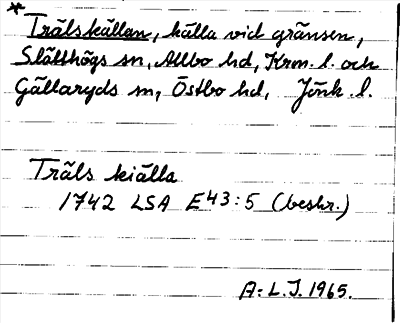 * Trälskällan, källa vid gränsen,
Slätthögs sn, Allbo hd, Krm. l. och
Gällaryds sn, Östbo hd, Jönk l.
Träls kiälla
1742 LSA E43:5 (beskr.)
A:L.J. 1965.